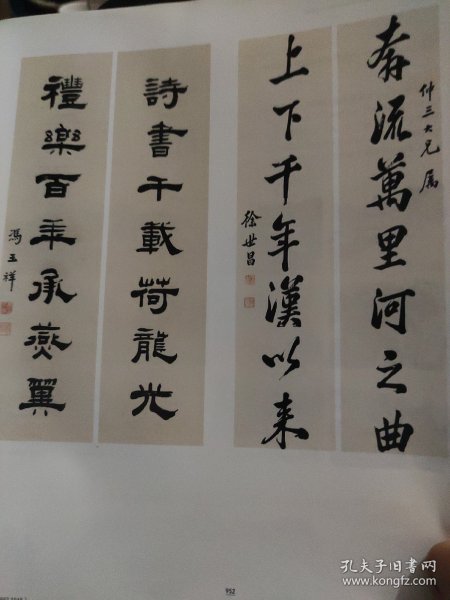 仲三大兄属
奔流萬里河之曲
上下千年漢以来
徐世昌
詩書千載荷龍光
禮樂百年承燕翼
馮玉祥
952
孔夫子旧书网
www.kongfz.com